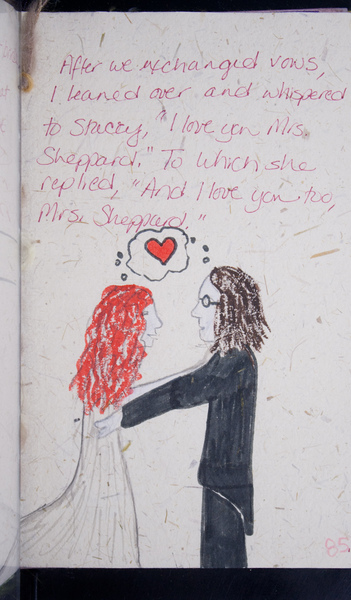 After we exchanged vows,
I leaned over and whispered
to Stacey, "I love you Mrs.
Sheppard." To which she
replied, "And I love you too,
Mrs. Sheppard."
85